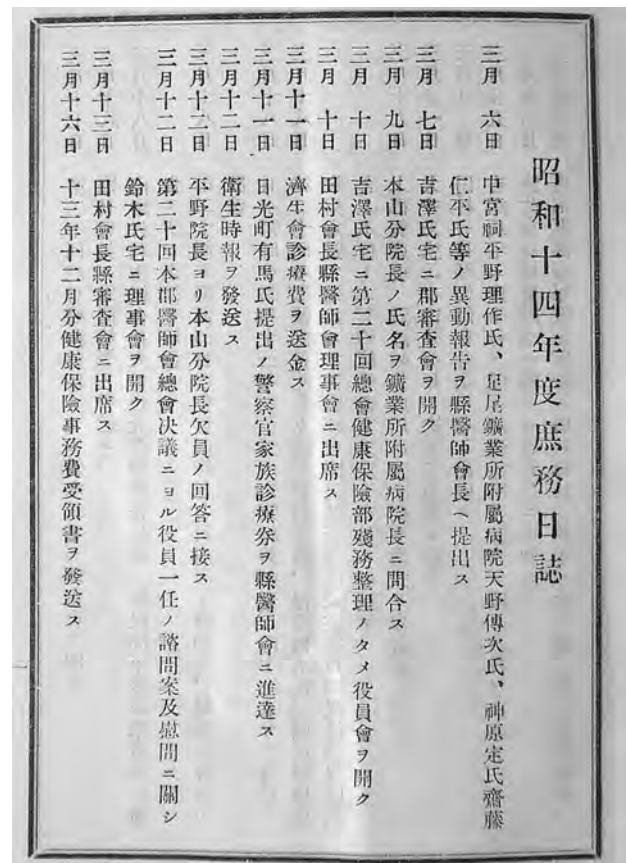 昭和十四年度庶務日誌
三月　六日　中宮祠平野理作氏、足尾鑛業所附屬病院天野傳次氏、神原定氏齋藤
仁平氏等ノ異動報告ヲ縣醫師會長ヘ提出ス
三月　七日　吉澤氏宅ニ郡審査會ヲ開ク
三月　九日　本山分院長ノ氏名ヲ鑛業所附屬病院長ニ問合ス
三月　十日　吉澤氏宅ニ第二十回總會健康保險部殘務整理ノタメ役員會ヲ開ク
三月　十日　田村會長縣醫師會理事會ニ出席ス
三月十一日　濟生會診療費ヲ送金ス
三月十一日　日光町有馬氏提出ノ警察官家族診療券ヲ縣醫師會ニ進達ス
三月十二日　衞生時報ヲ發送ス
三月十二日　平野院長ヨリ本山分院長欠員ノ回答ニ接ス
三月十二日　第二十回本郡醫師會總會決議ニヨル役員一任ノ諮問案及慰問ニ關シ
鈴木氏宅ニ理事會ヲ開ク
三月十三日　田村會長縣審査會ニ出席ス
三月十六日　十三年十二月分健康保險事務費受領書ヲ發送ス